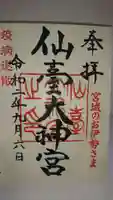 奉拝
宮城のお伊勢さま
仙臺大神宮
令和二年九月六日
疫病退散